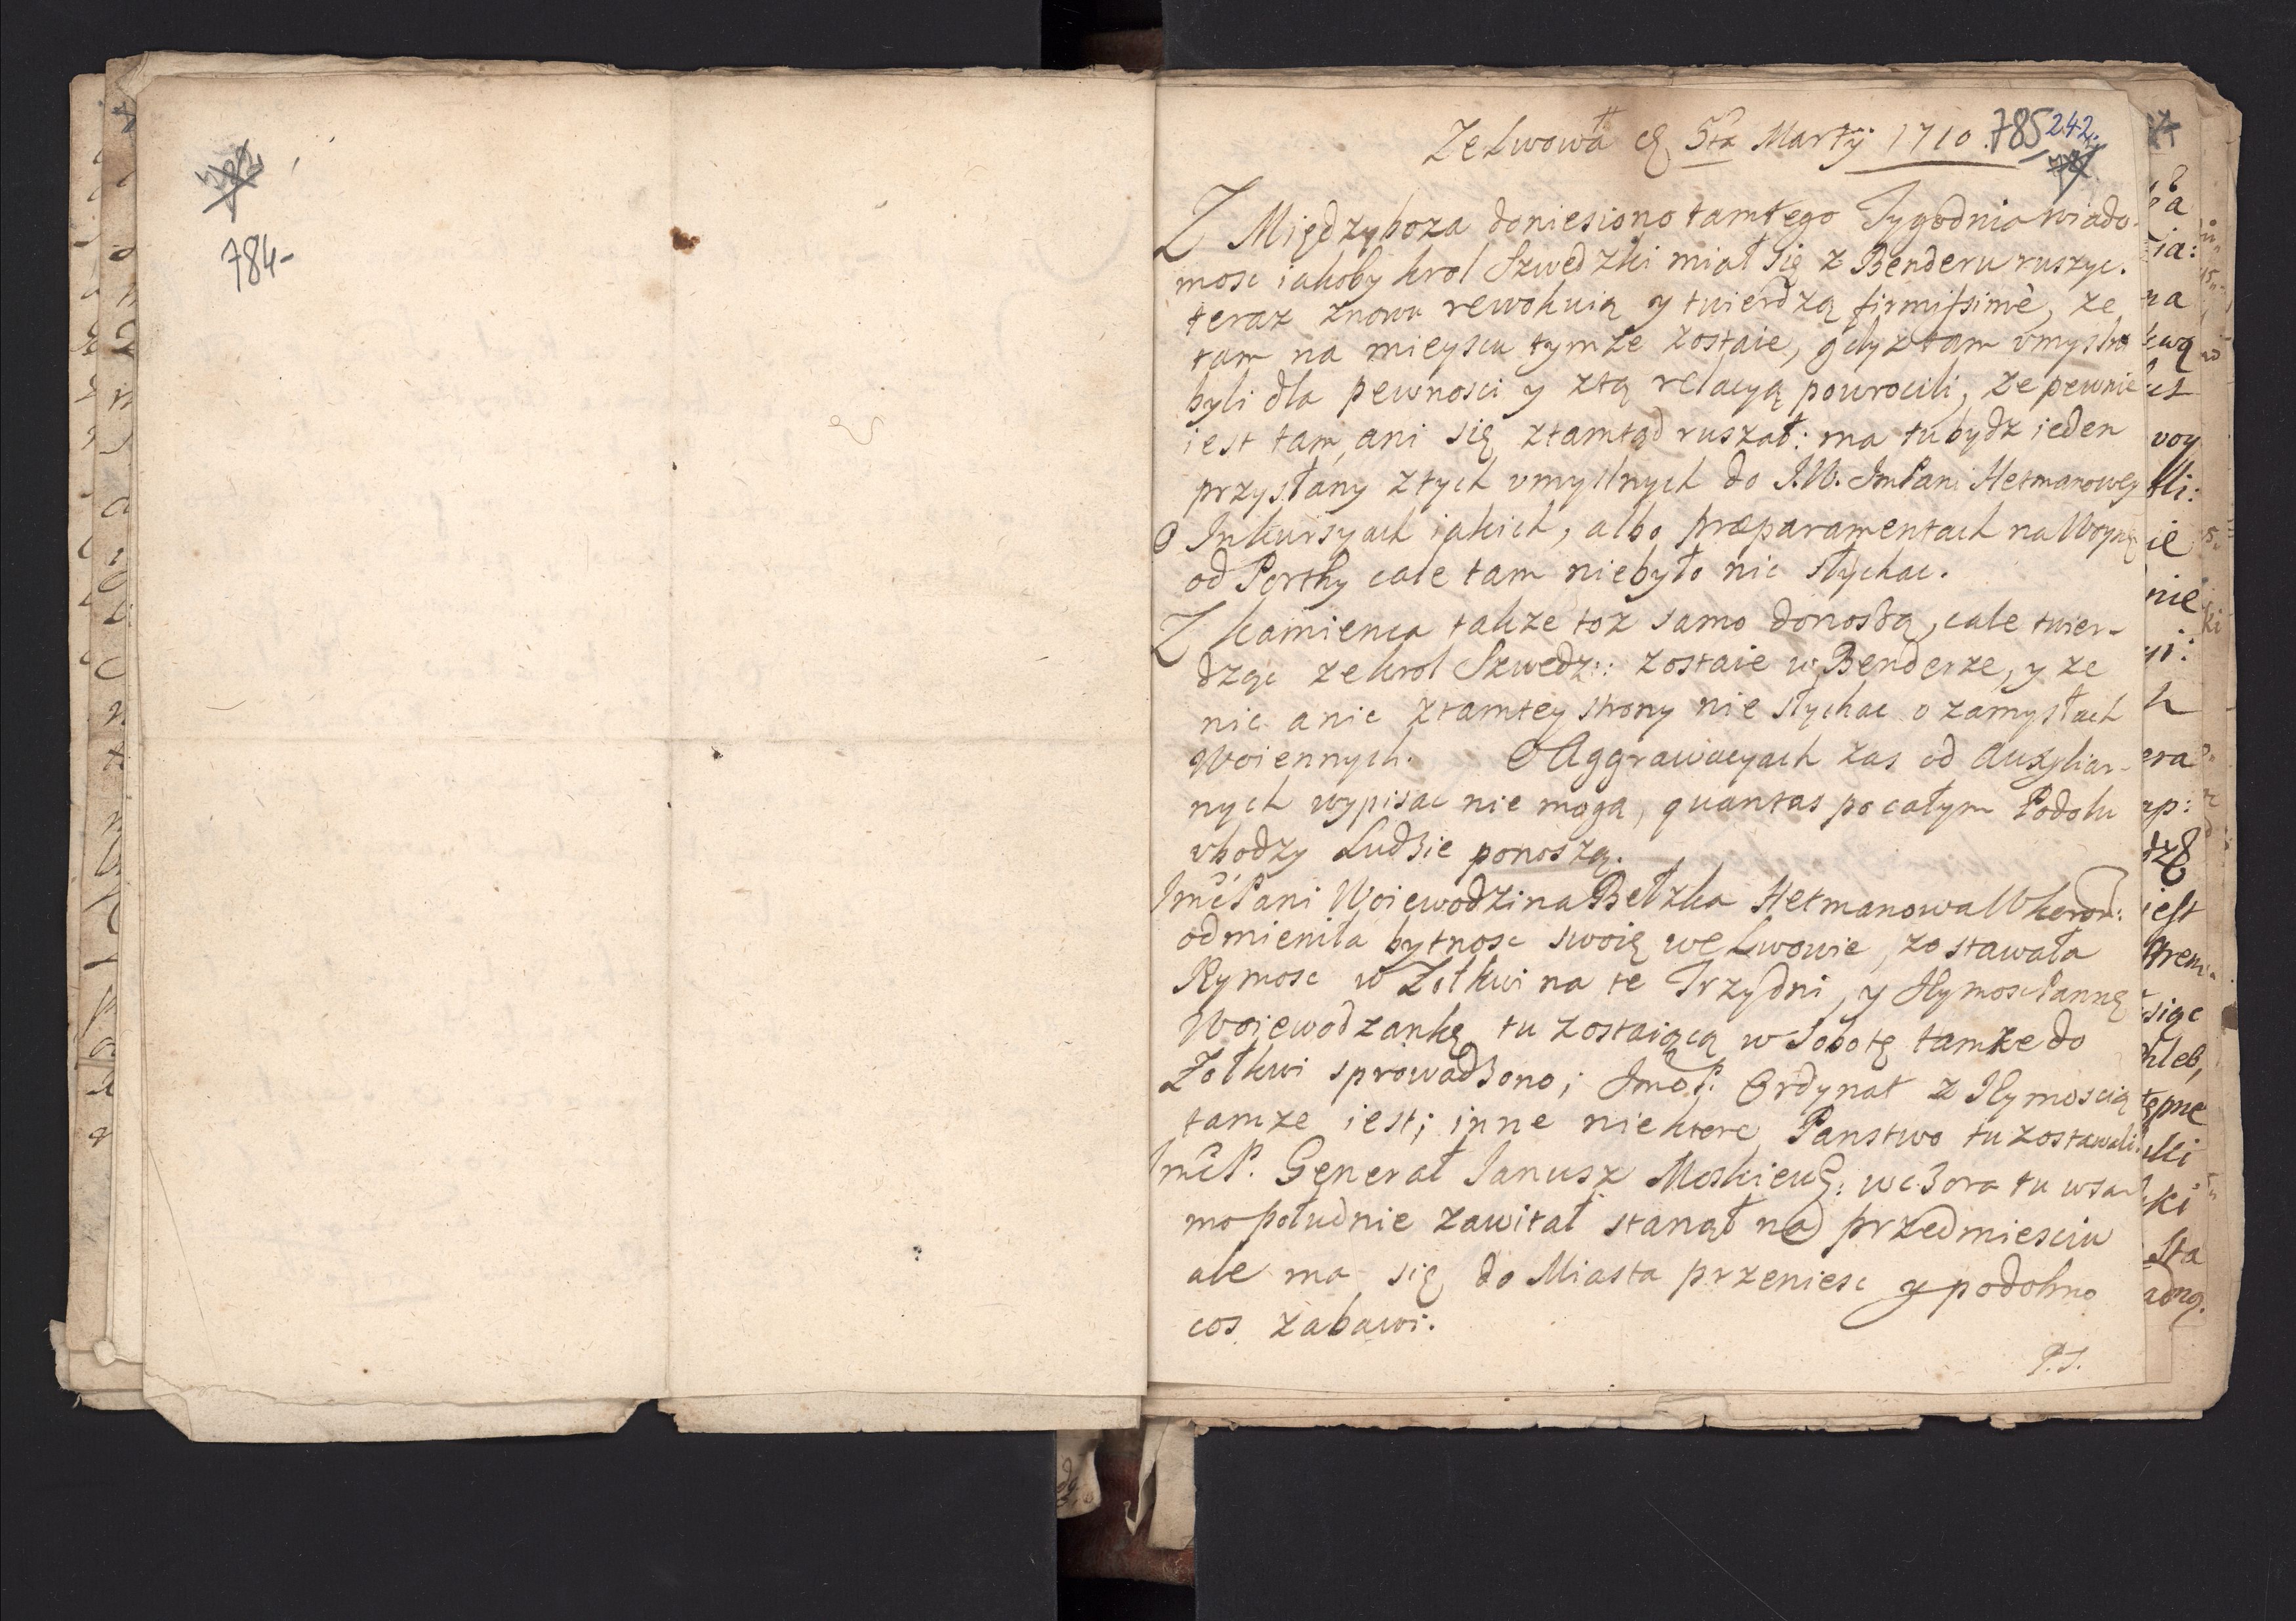 784-
Ze Lwowa d 5ta Martij 1710. 785 242.
Z Międzyboza doniesiono tamtego Tygodnia wiado-
mosc iakoby krol Szwedzki miał się z Benderu ruszyc.
teraz znowu rewokuią y twierdzą firmissimè, ze
tam na mieyscu tymze zostaie, gdyz tam vmyslni
byli dla pewnosci y ztą relacyą powrocili, ze pewnie
iest tam, ani się ztamtąd ruszał: ma tu bydz ieden
przysłany z tych vmyslnych do J.W. Jm Pani Hetmanowey
O Inkursyach iakich, albo præparamentach na Woynę
od Porthy cale tam niebyło nic słychac.
Z Kamienca takze toz samo donoszą, cale twier-
dząc ze krol Szwedz: zostaie w Benderze, y ze
nic a nic ztamtey strony nie słychac o zamysłach
Woiennych. O Aggrawacyach zas od Auxyliar-
nych wypisac nie mogą, quantas po całym Podolu
vbodzy Ludzie ponoszą.
Jmć Pani Woiewodzina Bełzka Hetmanowa W koron:
odmieniła bytnosc swoię we Lwowie, zostawała
Jeymosc w Zołkwi na te Trzy dni, y Jeymosc Pannę
Woiewodzankę tu zostaiącą w Sobotę tamze do
Zołkwi sprowadzono; Jmć P. Ordynat z Jeymoscią
tamze iest; inne niektore Panstwo tu zostawali.
Jmć P. Generał Janusz Moskiews: wczora tu wsa-
mo południe zawitał stanął na przedmiesciu
ale ma się do Miasta przeniesc y podobno
cos zabawi.
P.S.